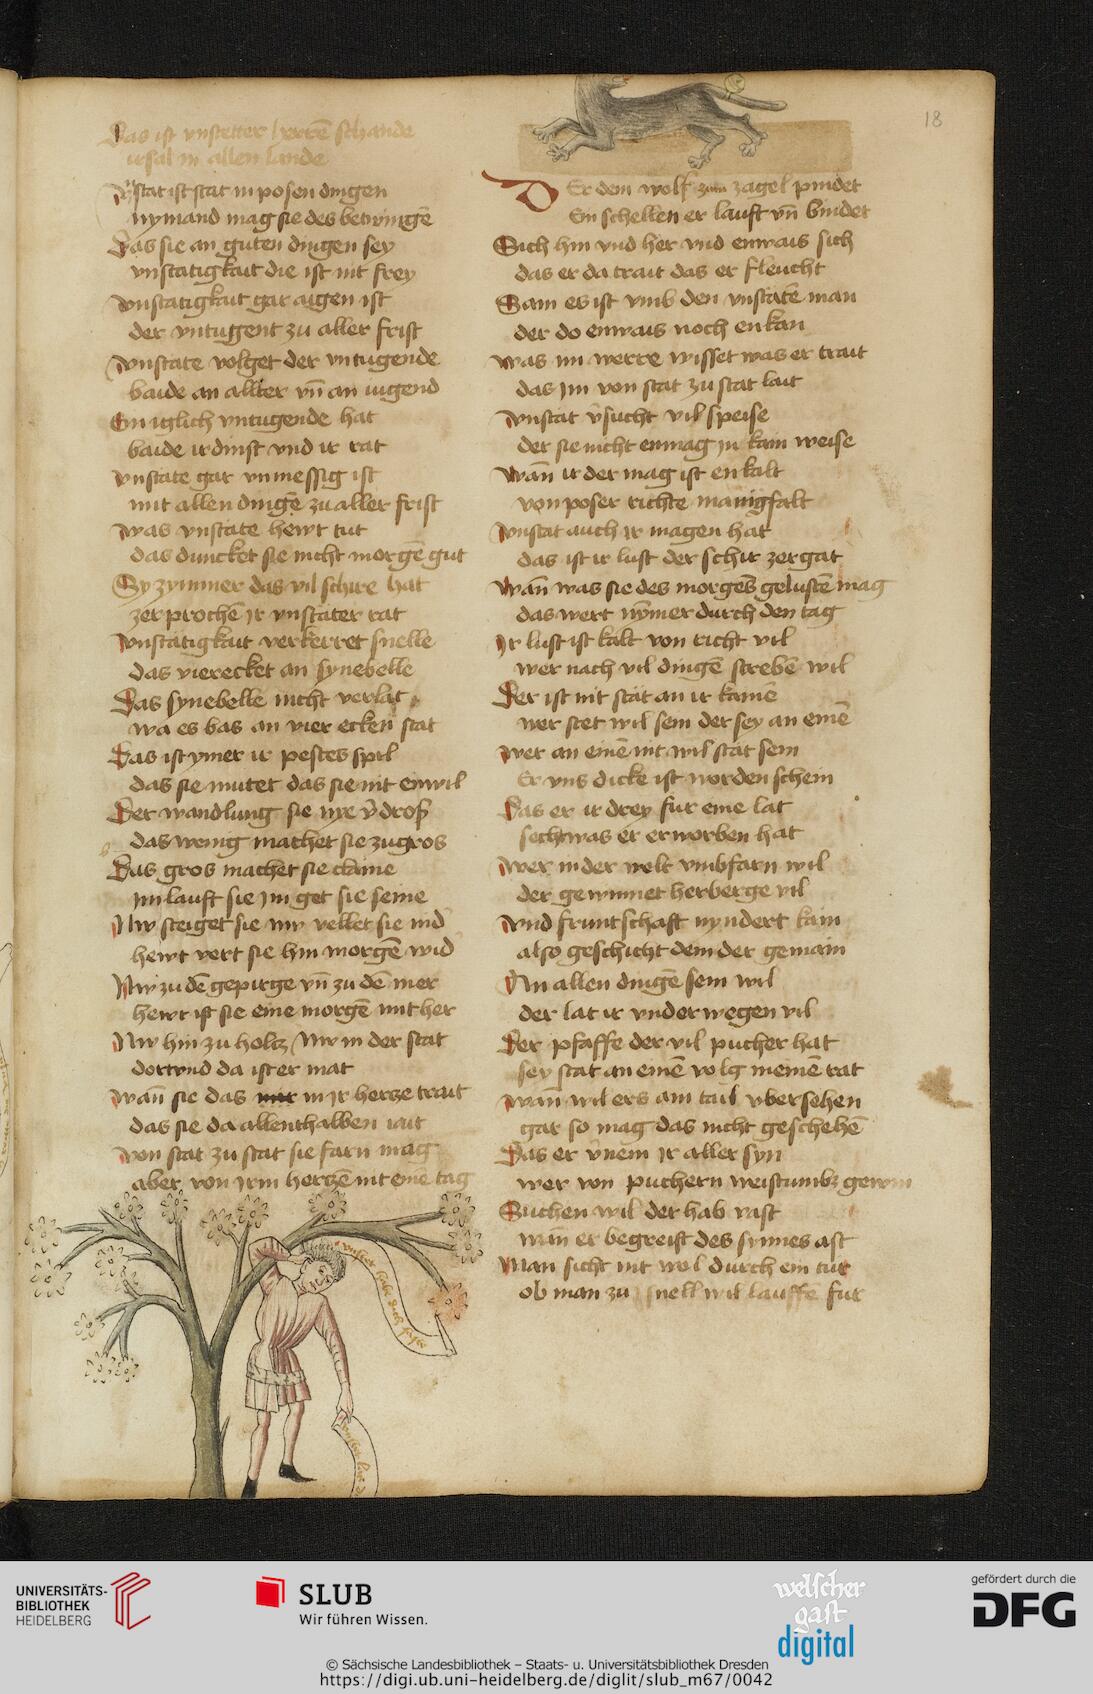 18
Das ist vnstetter herrē schande
irsal in allen lande
Vnstat ist stat in posen dingen
nymand mag sie des betwingē
Das sie an guten dingen sey
vnstatigkait die ist nit frey
Vnstatigkait gar aigen ist
der vntugent zu aller frist
Vnstate volget der vntugende
baide an allter vn̄ an iugend
Ein iglich vntugende hat
baide ir dinst vnd ir rat
Vnstate gar vnmessig ist
mit allen dingē zu aller frist
Was vnstate hewt tut
das duncket sie nicht morgē gut
Sy zymmer das vil schire hat
zerprochē Ir vnstater rat
Vnstatigkait verkerret snelle
das vierecket an synebelle
Das synebelle nicht verlat
wa es bas an vier ecken stat
Das ist ymer ir pestes spil
das sie mutet das sie nit enwil
Der wandlung sie nye v̄dros
das wenig machet sie zu gros
Das gros machet sie claine
Im lauft sie Im get sie seine
Nw steiget sie nw vellet sie nid
hewt vert sie hin morgē wid
Nw zu dē gepirge vn̄ zu dē mer
hewt ist sie eine morgē mit her
Nw hin zu holtz Nw in der stat
dort vnd da ist er mat
Wan̄ sie das in Ir hertze trait
das sie da allenthalben iait
Von stat zu stat sie farn mag
aber von Irm hertzē nit eine tag
DEr dem wolf zum zagel pindet
Ein schellen er lauft vn̄ bindet
Sich hin vnd her vnd enwais sich
das er da trait das er fleucht
Sam es ist vmb den vnstatē man
der do enwais noch enkan
Was im werre wisset was er trait
das Im von stat zu stat lait
Vnstat v̄sucht vil speise
der sie nicht enmag In kain weise
Wan̄ ir der mag ist enkalt
von poser richte manigfalt
Vnstat auch Ir magen hat
das ist ir lust der schir zergat
Wan̄ was sie des morgēs gelustē mag
das wert nȳmer durch den tag
Ir lust ist kalt von richt vil
wer nach vil dingē strebē wil
Der ist nit stat an ir kainē
wer stet wil sein der sey an einē
Wer an einē nit wil stat sein
Er vns dicke ist worden schein
Das er ir drey fur eine lat
secht was er erworben hat
Wer in der welt vmbfarn wil
der gewinnet herberge vil
Vnd fruntschaft nyndert kain
also geschicht dem der gemain
An allen dingē sein wil
der lat ir vnderwegen vil
Der pfaffe der vil pucher hat
sey stat an einē volg meinē rat
Wan̄ wil ers ain tail vbersehen
gar so mag das nicht geschehē
Das er v̄nem Ir aller syn
wer von puchern weistumbs gewin
Suchen wil der hab rast
wan er begreift des synnes ast
Man sicht nit wol durch ein tur
ob man zu snell wil lauffe fur
UNIVERSITÄTS-
BIBLIOTHEK
HEIDELBERG
SLUB
Wir führen Wissen.
welscher
gast
digital
gefördert durch die
DFG
© Sächsische Landesbibliothek – Staats- u. Universitätsbibliothek Dresden
https://digi.ub.uni-heidelberg.de/diglit/slub_m67/0042